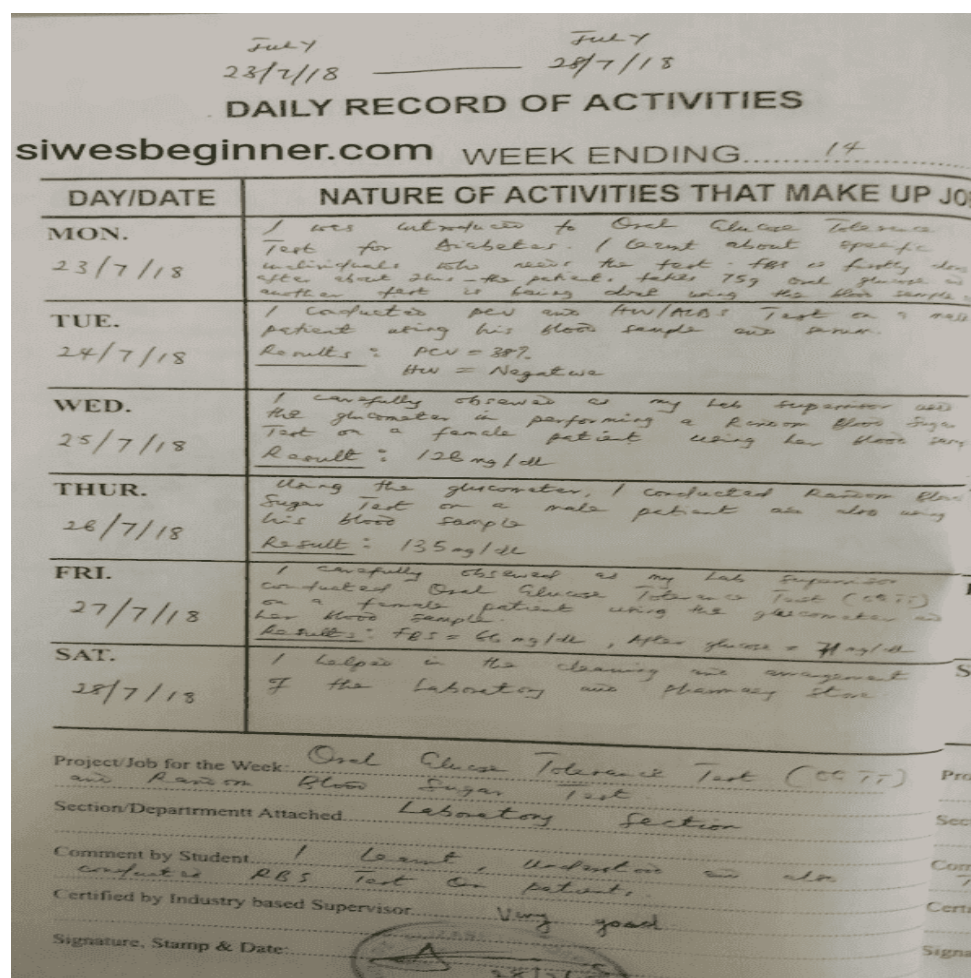 July July
23/7/18 — 28/7/18
DAILY RECORD OF ACTIVITIES
siwesbeginner.com WEEK ENDING 14
DAY/DATE NATURE OF ACTIVITIES THAT MAKE UP JO
MON. I was introduced to Oral Glucose Tolerance
Test for Diabetes. I learnt about specific
23/7/18 individuals who needs the test. FBS is firstly done
after about 2hrs the patient takes 75g oral glucose
another test is being done using the blood sample
TUE. I conducted PCV and Test on a male
patient using his blood sample and serum.
24/7/18 Results : PCV = 38%
= Negative
WED. I carefully observed as my Lab supervisor used
the glucometer in performing a Random Blood Sugar
25/7/18 Test on a female patient using her blood
Result : 126 mg/dl
THUR. Using the glucometer, I conducted Random
Sugar Test on a male patient also using
26/7/18 his blood sample
Result : 135 mg/dl
FRI. I carefully observed as my Lab supervisor
conducted Oral Glucose Tolerance Test (OGTT)
27/7/18 on a female patient using the glucometer
her blood sample.
Results : FBS = 66 mg/dl, After glucose = 71 mg/dl
SAT. I helped in the cleaning and arrangement
28/7/18 of the Laboratory and pharmacy store
Project/Job for the Week: Oral Glucose Tolerance Test (OGTT)
and Random Blood Sugar Test.
Section/Departmentt Attached Laboratory Section
Comment by Student I learnt, and also
conducted RBS Test on patients.
Certified by Industry based Supervisor Very good
Signature, Stamp & Date: